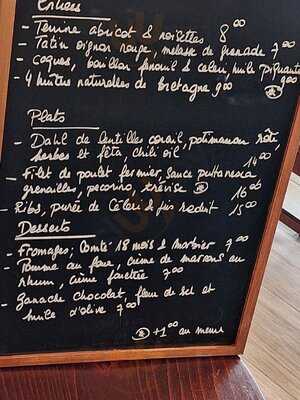 Entrées
- Terrine abricot & noisettes 8°°
- Tatin oignon rouge, mélasse de grenade 7°°
- Coques, bouillon fenouil & céleri, huile piquante 9°°
- 4 huîtres naturelles de bretagne 9°°
Plats
- Dahl de lentilles corail, potimarron rôti
herbes et fêta, chili oil 14°°
- Filet de poulet fermier, sauce puttanesca
grenailles, pecorino, trévise 16°°
- Ribs, purée de céleri & jus réduit 15°°
Desserts
- Fromages: Comté 18 mois & morbier 7°°
- Pomme au four, crème de marrons au
rhum, crème fouettée 7°°
- Ganache chocolat, fleur de sel et
huile d'olive 7°°
+1°° au menu